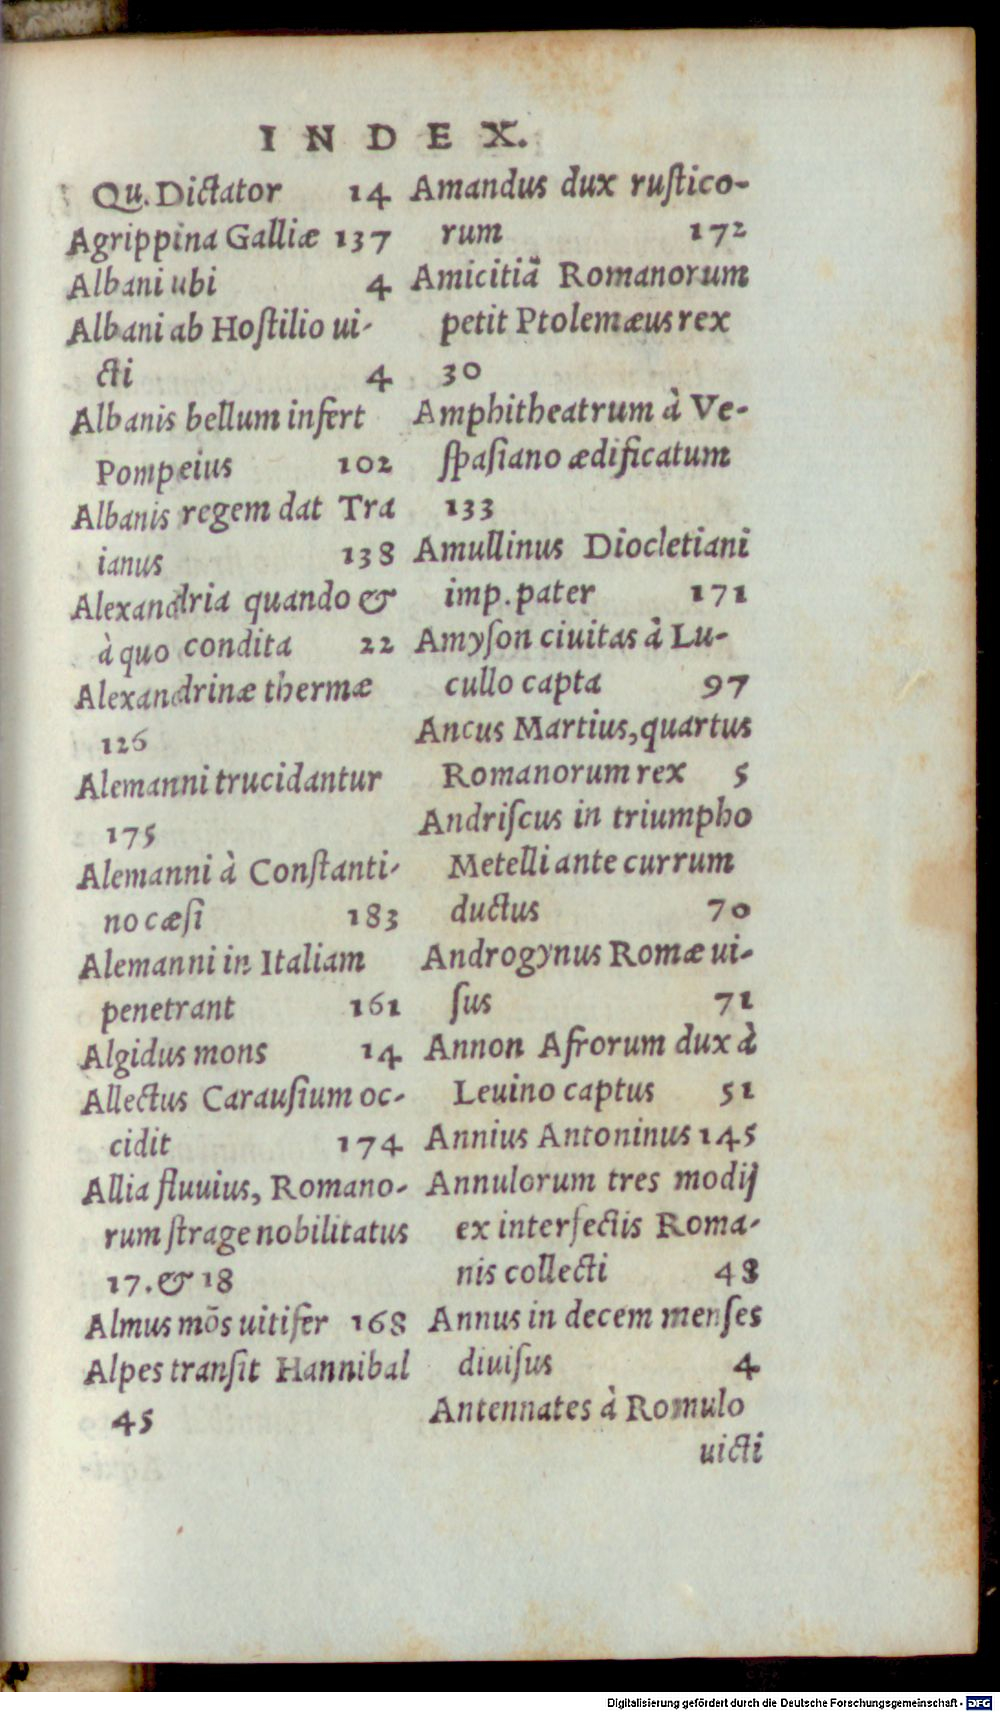 INDEX.
Qu. Dictator 14
Agrippina Galliæ 137
Albani ubi 4
Albani ab Hoſtilio ui-
cti 4
Albanis bellum infert
Pompeius 102
Albanis regem dat Tra
ianus 138
Alexandria quando &
à quo condita 22
Alexandrinæ thermæ
126
Alemanni trucidantur
175
Alemanni à Conſtanti-
no cæſi 183
Alemanni in Italiam
penetrant 161
Algidus mons 14
Allectus Carauſium oc-
cidit 174
Allia fluuius, Romano-
rum ſtrage nobilitatus
17. & 18
Almus mōs uitifer 168
Alpes tranſit Hannibal
45
Amandus dux ruſtico-
rum 172
Amicitiā Romanorum
petit Ptolemæus rex
30
Amphitheatrum à Ve-
ſpaſiano ædificatum
133
Amullinus Diocletiani
imp. pater 171
Amyſon ciuitas à Lu-
cullo capta 97
Ancus Martius, quartus
Romanorum rex 5
Andriſcus in triumpho
Metelli ante currum
ductus 70
Androgynus Romæ ui-
ſus 71
Annon Afrorum dux à
Leuino captus 51
Annius Antoninus 145
Annulorum tres modij
ex interfectis Roma-
nis collecti 48
Annus in decem menſes
diuiſus 4
Antennates à Romulo
uicti
Digitalisierung gefördert durch die Deutsche Forschungsgemeinschaft - DFG